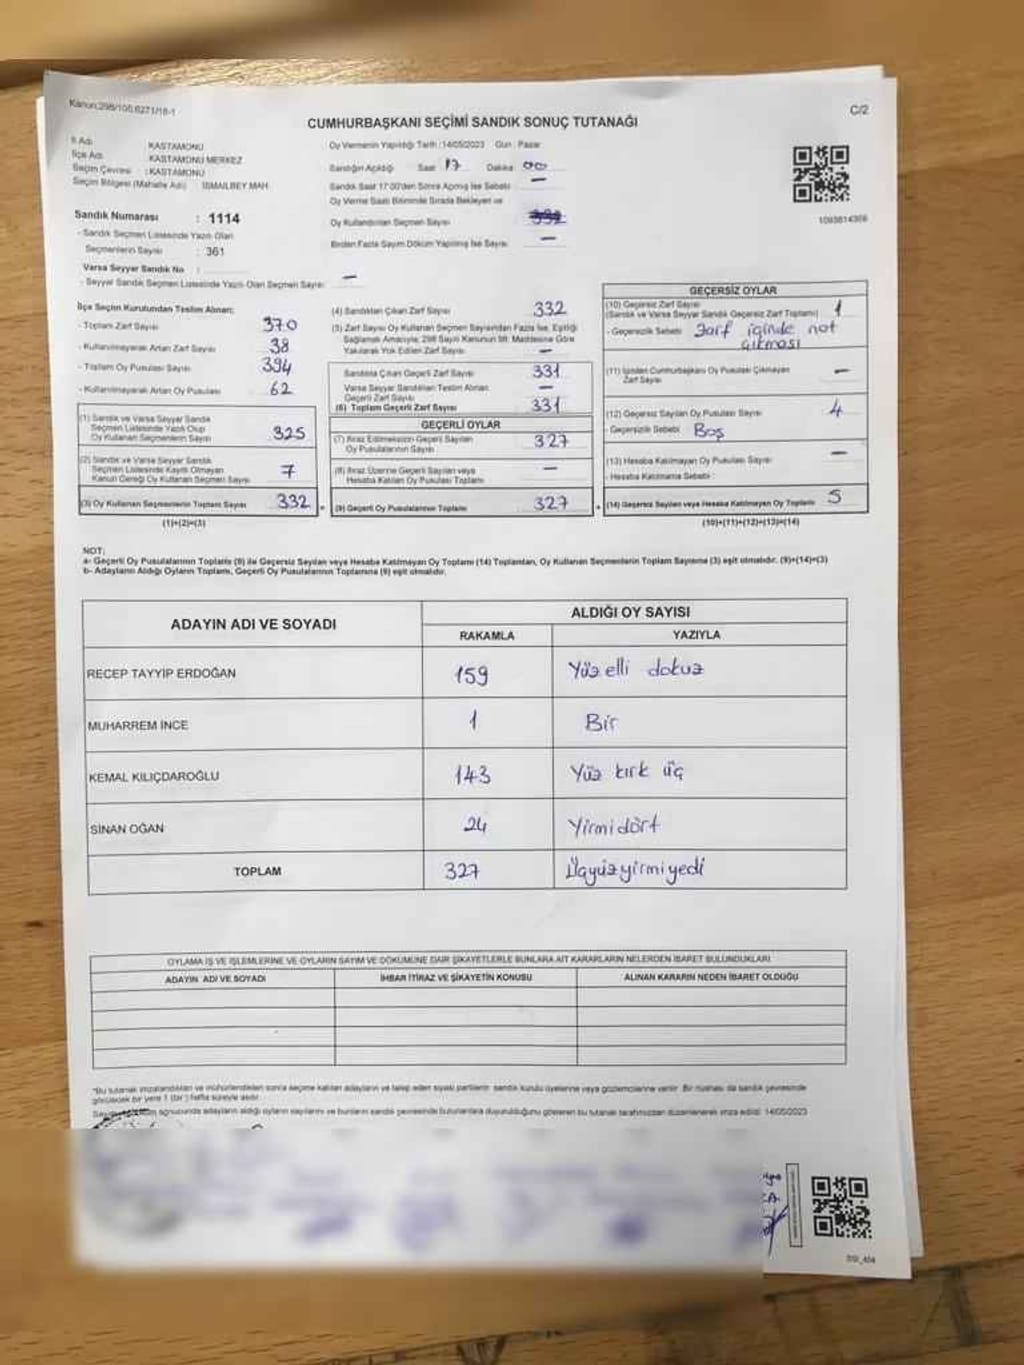 Kanun:298/105,6271/18-1
C/2
CUMHURBAŞKANI SEÇİMİ SANDIK SONUÇ TUTANAĞI
İl Adı KASTAMONU
İlçe Adı KASTAMONU MERKEZ
Seçim Çevresi : KASTAMONU
Seçim Bölgesi (Mahalle Adı) İSMAİLBEY MAH
Sandık Numarası : 1114
- Sandık Seçmen Listesinde Yazılı Olan
Seçmenlerin Sayısı : 361
Varsa Seyyar Sandık No :
- Seyyar Sandık Seçmen Listesinde Yazılı Olan Seçmen Sayısı —
Oy Vermenin Yapıldığı Tarih : 14/05/2023 Gün : Pazar
Sandığın Açıldığı Saat 17 Dakika 00
Sandık Saat 17:00'den Sonra Açılmış İse Sebebi —
Oy Verme Saati Bitiminde Sırada Bekleyen ve
Oy Kullandırılan Seçmen Sayısı
Birden Fazla Sayım Döküm Yapılmış İse Sayısı —
1093814308
İlçe Seçim Kurulundan Teslim Alınan:
- Toplam Zarf Sayısı 370
- Kullanılmayarak Artan Zarf Sayısı 38
- Toplam Oy Pusulası Sayısı 394
- Kullanılmayarak Artan Oy Pusulası 62
(1) Sandık ve Varsa Seyyar Sandık
Seçmen Listesinde Yazılı Olup
Oy Kullanan Seçmenlerin Sayısı 325
(2) Sandık ve Varsa Seyyar Sandık
Seçmen Listesinde Kayıtlı Olmayan
Kanun Gereği Oy Kullanan Seçmen Sayısı 7
(3) Oy Kullanan Seçmenlerin Toplam Sayısı 332
(1)+(2)=(3)
(4) Sandıktan Çıkan Zarf Sayısı 332
(5) Zarf Sayısı Oy Kullanan Seçmen Sayısından Fazla İse, Eşitliği
Sağlamak Amacıyla, 298 Sayılı Kanunun 98. Maddesine Göre
Yakılarak Yok Edilen Zarf Sayısı —
Sandıkta Çıkan Geçerli Zarf Sayısı 331
Varsa Seyyar Sandıktan Teslim Alınan
Geçerli Zarf Sayısı —
(6) Toplam Geçerli Zarf Sayısı 331
GEÇERLİ OYLAR
(7) İtiraz Edilmeksizin Geçerli Sayılan
Oy Pusulalarının Sayısı 327
(8) İtiraz Üzerine Geçerli Sayılan veya
Hesaba Katılan Oy Pusulası Toplamı —
(9) Geçerli Oy Pusulalarının Toplamı 327
GEÇERSİZ OYLAR
(10) Geçersiz Zarf Sayısı 1
(Sandık ve Varsa Seyyar Sandık Geçersiz Zarf Toplamı)
- Geçersizlik Sebebi Zarf içinde not
çıkması
(11) İçinden Cumhurbaşkanı Oy Pusulası Çıkmayan
Zarf Sayısı —
(12) Geçersiz Sayılan Oy Pusulası Sayısı 4
- Geçersizlik Sebebi Boş
(13) Hesaba Katılmayan Oy Pusulası Sayısı —
- Hesaba Katılmama Sebebi :
(14) Geçersiz Sayılan veya Hesaba Katılmayan Oy Toplamı 5
(10)+(11)+(12)+(13)=(14)
NOT:
a- Geçerli Oy Pusulalarının Toplamı (9) ile Geçersiz Sayılan veya Hesaba Katılmayan Oy Toplamı (14) Toplamları, Oy Kullanan Seçmenlerin Toplam Sayısına (3) eşit olmalıdır. (9)+(14)=(3)
b- Adayların Aldığı Oyların Toplamı, Geçerli Oy Pusulalarının Toplamına (9) eşit olmalıdır.
ADAYIN ADI VE SOYADI
ALDIĞI OY SAYISI
RAKAMLA YAZIYLA
RECEP TAYYİP ERDOĞAN 159 Yüz elli dokuz
MUHARREM İNCE 1 Bir
KEMAL KILIÇDAROĞLU 143 Yüz kırk üç
SİNAN OĞAN 24 Yirmidört
TOPLAM 327 Üçyüzyirmiyedi
OYLAMA İŞ VE İŞLEMLERİNE VE OYLARIN SAYIM VE DÖKÜMÜNE DAİR ŞİKAYETLERLE BUNLARA AİT KARARLARIN NELERDEN İBARET BULUNDUKLARI
ADAYIN ADI VE SOYADI İHBAR İTİRAZ VE ŞİKAYETİN KONUSU ALINAN KARARIN NEDEN İBARET OLDUĞU
*Bu tutanak imzalandıktan ve mühürlendikten sonra seçime katılan adayların ve talep eden siyasi partilerin sandık kurulu üyelerine veya gözlemcilerine verilir. Bir nüshası da sandık çevresinde
görülecek bir yere 1 (bir) hafta süreyle asılır.
sonucunda adayların aldığı oyların sayılarını ve bunların sandık çevresinde bulunanlara duyurulduğunu gösteren bu tutanak tarafımızdan düzenlenerek imza edildi. 14/05/2023